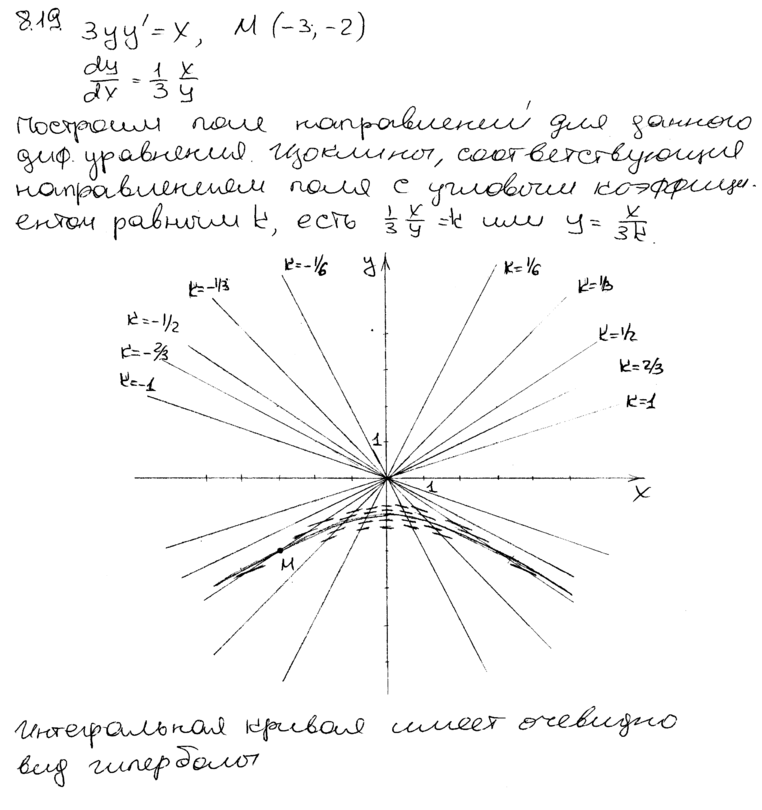 8.19. 3yy' = x, M (-3, -2)
dy/dx = 1/3 x/y
Построим поле направлений для данного
диф. уравнения. Изоклины, соответствующие
направлениям поля с угловым коэффици-
ентом равным k, есть 1/3 x/y = k или y = x/3k.
k=-1/6 y k=1/6
k=-1/3 k=1/3
k=-1/2 k=1/2
k=-2/3 k=2/3
k=-1 k=1
1
1 x
M
Интегральная кривая имеет очевидно
вид гиперболы